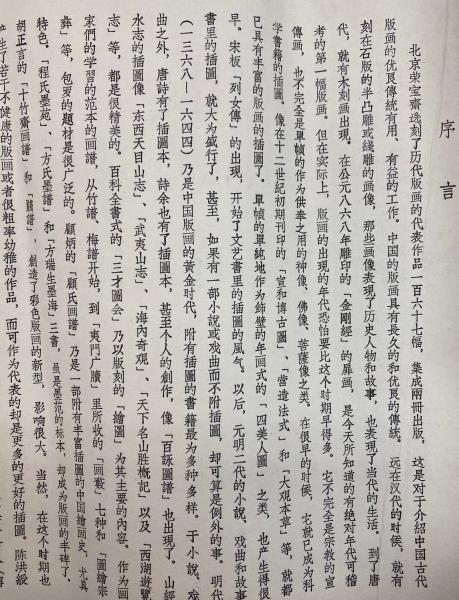 序言
北京荣宝斋选刻了历代版画的代表作品一百六十七幅，集成兩冊出版，这是对于介紹中国古代
版画的优良傳統有用、有益的工作。中国的版画具有長久的和优良的傳統。远在汉代的时候，就有
刻在石版的半凸雕或綫雕的画像，那些画像表現了历史人物和故事，也表現了当代的生活。到了唐
代，就有木刻画出現。在公元八六八年雕印的「金剛經」的扉画，是今天所知道的有絕对年代可稽
考的第一幅版画。但在实际上，版画的出現的年代恐怕要比这个时期早得多。它不完全是宗教的宣
傳画，也不完全是單幀的作为供奉之用的神像、佛像、菩薩像之类。在很早的时候，它就已成为科
学書籍的插圖。像在十二世紀初期刊印的「宣和博古圖」、「营造法式」和「大观本草」等，就都
已具有丰富的版画的插圖了。單幀的單純地作为飾壁的年画式的「四美人圖」之类，也产生得很
早。宋板「列女傳」的出現，开始了文艺書里的插圖的風气。以后，元明二代的小說、戏曲和故事
書里的插圖，就大为盛行了，甚至，如果有一部小說或戏曲而不附插圖，却可算是例外的事。明代
（一三六八—一六四四）乃是中国版画的黄金时代，附有插圖的書籍最为多种多样。于小說、戏
曲之外，唐詩有了插圖本，詩余也有了插圖本，甚至个人的創作，像「百詠圖譜」也出現了。山經
水志的插圖像「东西天目山志」、「武夷山志」、「海內奇观」、「天下名山胜槪記」以及「西湖遊覽
志」等，都是很精美的。百科全書式的「三才圖会」乃以版刻的「繪圖」为其主要的內容。作为画
家們的学習的范本的画譜，从竹譜、梅譜开始，到「夷門广牘」里所收的「画藪」七种和「圖繪宗
彝」等，包罗的題材是很广泛的。顧炳的「顧氏画譜」乃是一部附有丰富插圖的中国繪画史，尤具
特色。「程氏墨苑」、「方氏墨譜」和「方瑞生墨海」三書，虽是墨范的标本，却成为版画的丰碑了。
胡正言的「十竹齋画譜」和「箋譜」，創造了彩色版画的新型，影响很大。当然，在这个时期也
产生了若干不健康的版画或者很粗率幼稚的作品，而可作为代表的却是更多的更好的插圖。陈洪綬